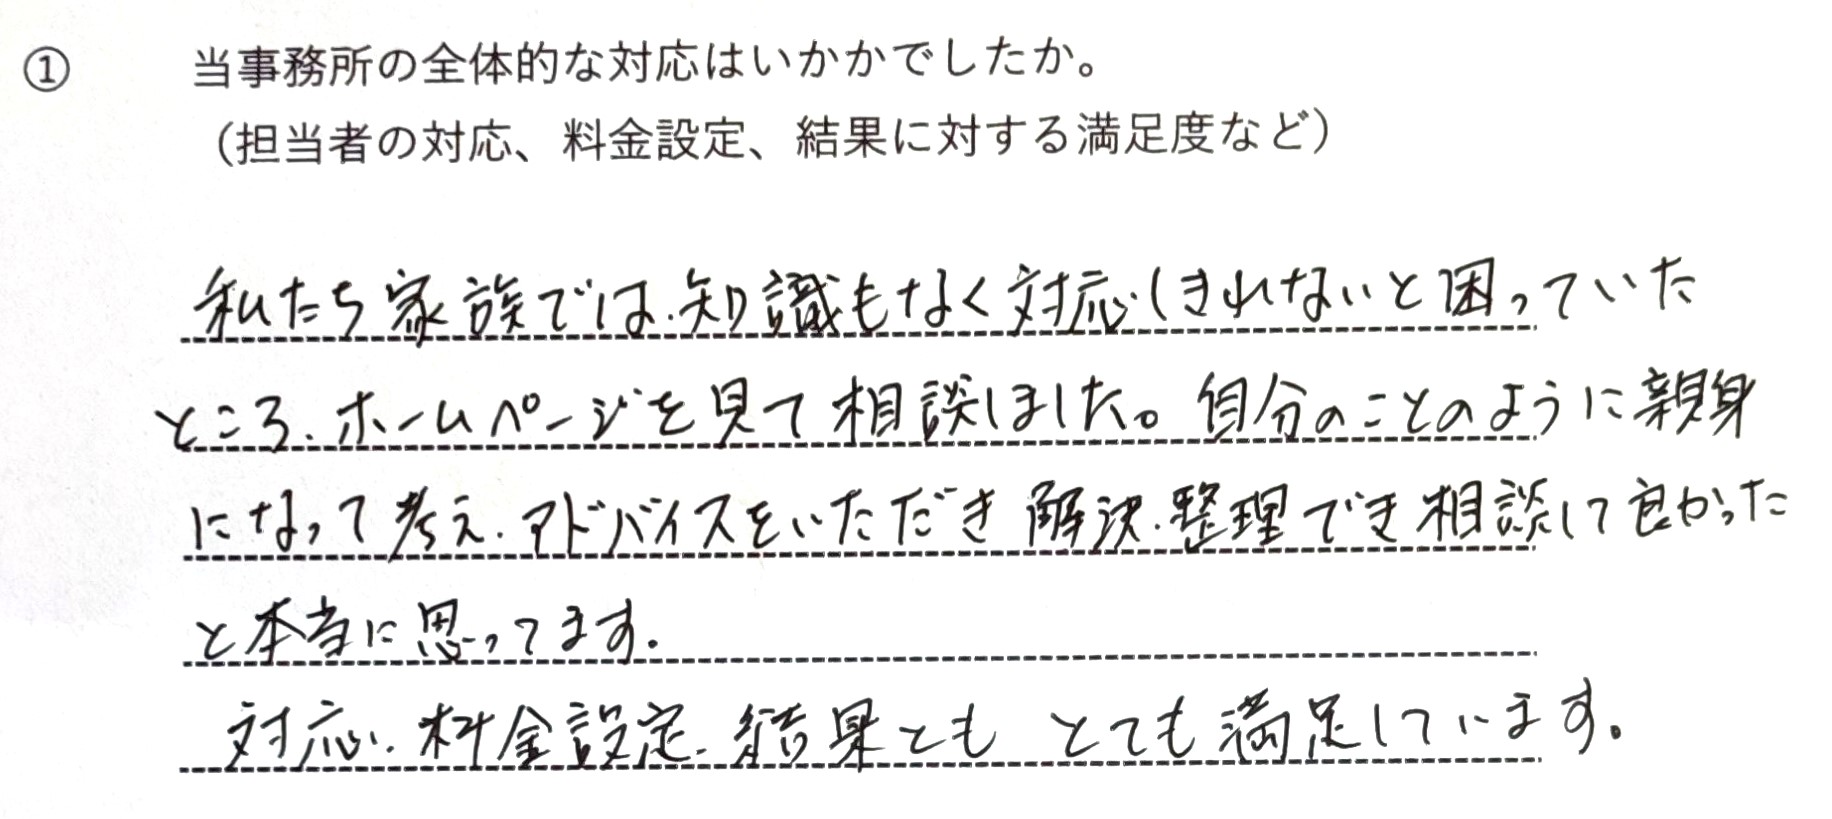 ① 当事務所の全体的な対応はいかかでしたか。
（担当者の対応、料金設定、結果に対する満足度など）
私たち家族では、知識もなく対応しきれないと困っていた
ところ、ホームページを見て相談しました。自分のことのように親身
になって考え、アドバイスをいただき解決、整理でき相談して良かった
と本当に思ってます。
対応、料金設定、結果とも とても満足しています。